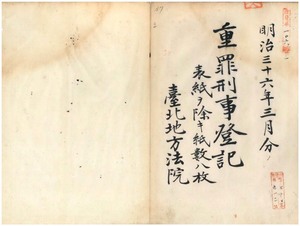 明治三十六年三月分
重罪刑事登記
表紙ヲ除キ紙數八枚
臺北地方法院